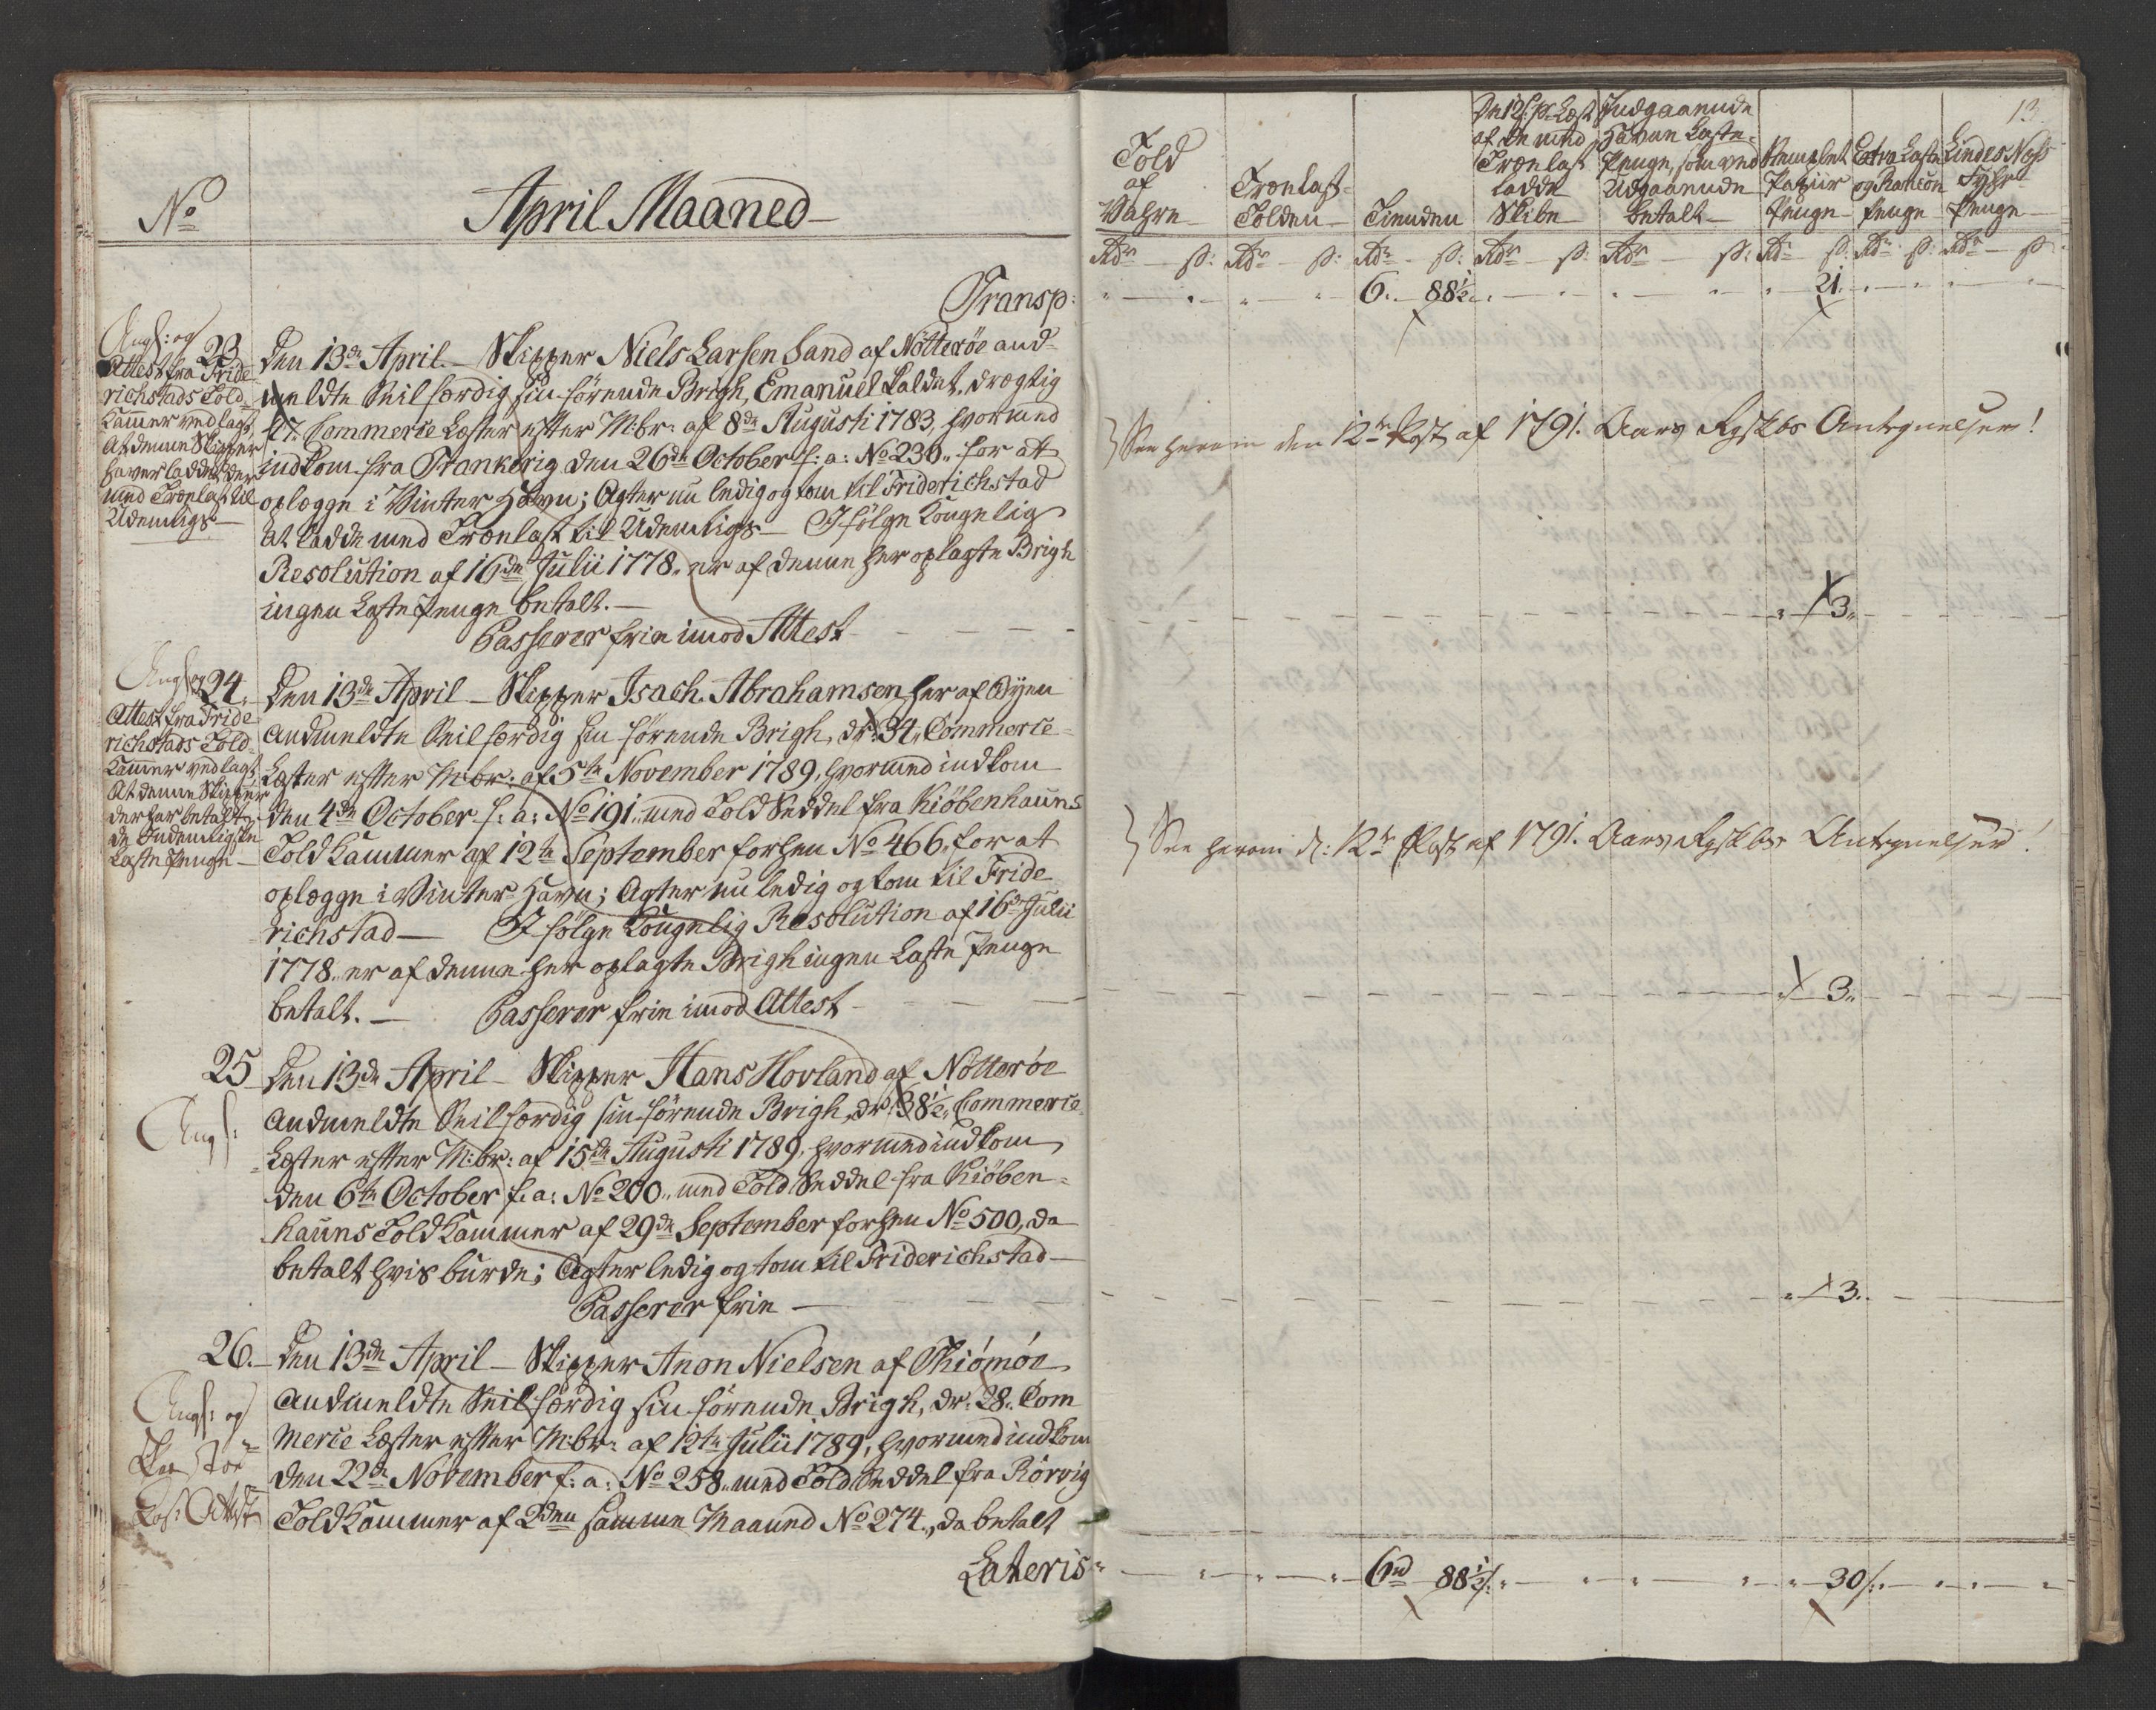 No
April Maaned
Transp:
Angf: og
23
Attest fra Fride
richstads Told
Kammer vedlagt,
At denne Skipper
haver laddet der
med Trælast til
Udenrigs
Den 13de April. Skipper Niels Larsen Sand af Nötteröe and
meldte Seilfærdig sin förende Brigh, Emanuel kaldet, drægtig
47. Commerce Læster efter M:br: af 8de Augusti 1783, hvormed
indkom fra Frankerig den 26de October f: a: No 230. for at
oplægge i Vinter Havn; Agter nu ledig og tom til Friderichstad
at ladde med Trælast til Udenrigs – I fölge Kongelig
Resolution af 16de Julii 1778. er af denne her oplagte Brigh
ingen Læste Penge betalt. –
Passerer frie imod Attest
Angf: og
24.
Attest fra Fride
richstads Told
Kammer vedlagt,
At denne Skipper
der har betalt
de Indenrigske
Læste Penge –
Den 13de April – Skipper Isach Abrahamsen her af Öyen
andmeldte Seilfærdig sin förende Brigh, dr: 34. Commerce
Læster efter M:br: af 5te November 1789, hvormed indkom
den 4de October f: a: No 191. med Told Seddel fra Kiöbenhauns
Told Kammer af 12te September forhen No 466. for at
oplægge i Vinter Havn; Agter nu ledig og tom til Fride
richstad – I fölge Kongelig Resolution af 16de Julii
1778. er af denne her oplagte Brigh ingen Læste Penge
betalt. – Passerer frie imod Attest
25
Angf:
Den 13de April – Skipper Hans Hovland af Nötteröe
andmeldte Seilfærdig sin förende Brigh, dr: 38½. Commerce
Læster efter M:br: af 15de Augusti 1789, hvormed indkom
den 6te October f: a: No 200. med Told Seddel fra Kiöben
hauns Told Kammer af 29de September forhen No 500, da
betalt hvis burde; Agter ledig og tom til Friderichstad –
Passerer frie –
26.
Angf: og
Attest
Den 13de April – Skipper Anon Nielsen af Thiömöe
andmeldte Seilfærdig sin förende Brigh, dr: 28. Com
merce Læster efter M:br: af 12te Julii 1789, hvormed indkom
den 22de November f: a: No 258. med Told Seddel fra Rörvig
Told Kammer af 2den samme Maaned No 274., da betalt
Lateris
13.
Told af Vahre
Trælast Tolden
Tienden
De 12 s: pr Læst af de med Trælast ladde Skibe
Indgaaende Havne Læste Penge, som ved Udgaaende betalt
Stemplet Papiir Penge
Extra Læste og Rancon Penge
Lindes Næss Fyhr Penge
Rdr s: Rdr s: Rdr s: Rdr s: Rdr s: Rdr s: Rdr s: Rdr s:
6. 88½. 21.
See herom den 12te Post af 1791. Aars Rgskbs Antegnelser!
3.
See herom d: 12te Post af 1791. Aars Rgskbs Antegnelser!
3.
3.
6rd 88½ s: 30 s: